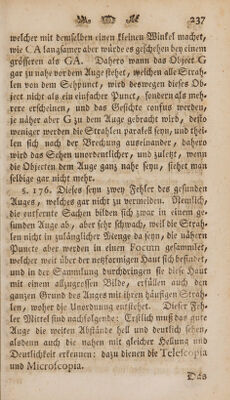 237
welcher mit demselben einen kleinen Winkel machet,
wie CA langsamer aber würde es geschehen bey einem
grösseren als GA. Dahero wann das Object G
gar zu nahe vor dem Auge stehet, welchen alle Strah-
len von dem Sehpunct, wird deswegen dieses Ob-
ject nicht als ein einfacher Punct, sondern als meh-
rere erscheinen, und das Gesichte confus werden,
je näher aber G zu dem Auge gebracht wird, desto
weniger werden die Strahlen parallel seyn, und thei-
len sich nach der Brechung auseinander, dahero
wird das Sehen unordentlicher, und zuletzt, wenn
die Objecten dem Auge ganz nahe seyn, siehet man
selbige gar nicht mehr.
§. 176. Dieses seyn zwey Fehler des gesunden
Auges, welches gar nicht zu vermeiden. Nemlich,
die entfernte Sachen bilden sich zwar in einem ge-
sunden Auge ab, aber sehr schwach, weil die Strah-
len nicht in zulänglicher Menge da seyn, die nähern
Puncte aber werden in einen Focum gesammlet,
welcher weit über der netzformigen Haut sich befindet,
und in der Sammlung durchdringen sie diese Haut
mit einem allzugrossen Bilde, erfüllen auch den
ganzen Grund des Auges mit ihren häufigen Strah-
len, woher die Unordnung entstehet. Dieser Feh-
ler Mittel sind nachfolgende: Erstlich muß das gute
Auge die weiten Abstände hell und deutlich sehen,
alsdenn auch die nahen mit gleicher Hellung und
Deutlichkeit erkennen: dazu dienen die Telescopia
und Microscopia.
Das